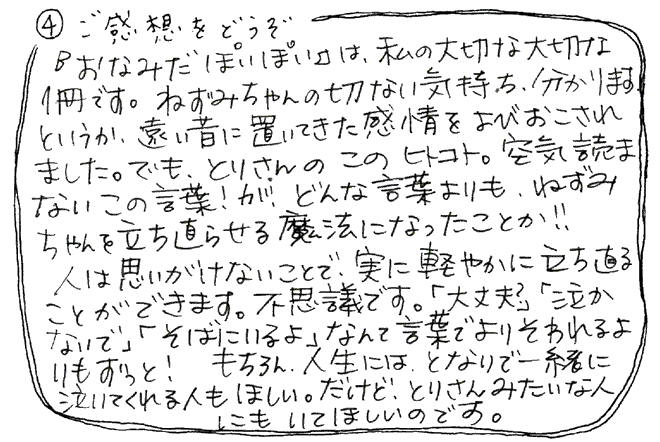 ④ ご感想をどうぞ
『おなみだぽいぽい』は、私の大切な大切な
1冊です。ねずみちゃんの切ない気持ち、分かります。
というか、遠い昔に置いてきた感情をよびおこされ
ました。でも、とりさんの このヒトコト。空気読ま
ないこの言葉！が、どんな言葉よりも、ねずみ
ちゃんを立ち直らせる魔法になったことか!!
人は思いがけないことで、実に軽やかに立ち直る
ことができます。不思議です。「大丈夫?」「泣か
ないで」「そばにいるよ」なんて言葉でよりそわれるよ
りもずっと！ もちろん、人生には、となりで一緒に
泣いてくれる人もほしい。だけど、とりさんみたいな人
にも いてほしいのです。